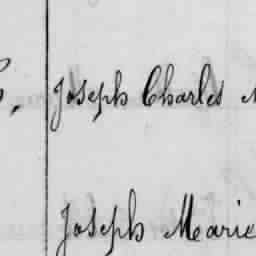 Joseph Charles
Joseph Marie